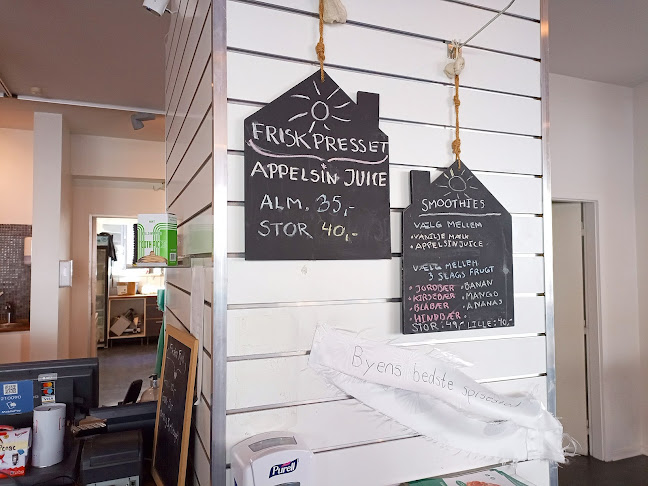 FRISKPRESSET
APPELSIN JUICE
ALM. 35,-
STOR 40,-
SMOOTHIES
VÆLG MELLEM
• VANILJE MÆLK
• APPELSINJUICE
VÆLG MELLEM
3 SLAGS FRUGT
• JORDBÆR • BANAN
• KIRSEBÆR • MANGO
• BLÅBÆR • ANANAS
• HINDBÆR
STOR: 49,- LILLE: 40,-
Byens bedste spisested
PURELL